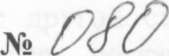 № 080